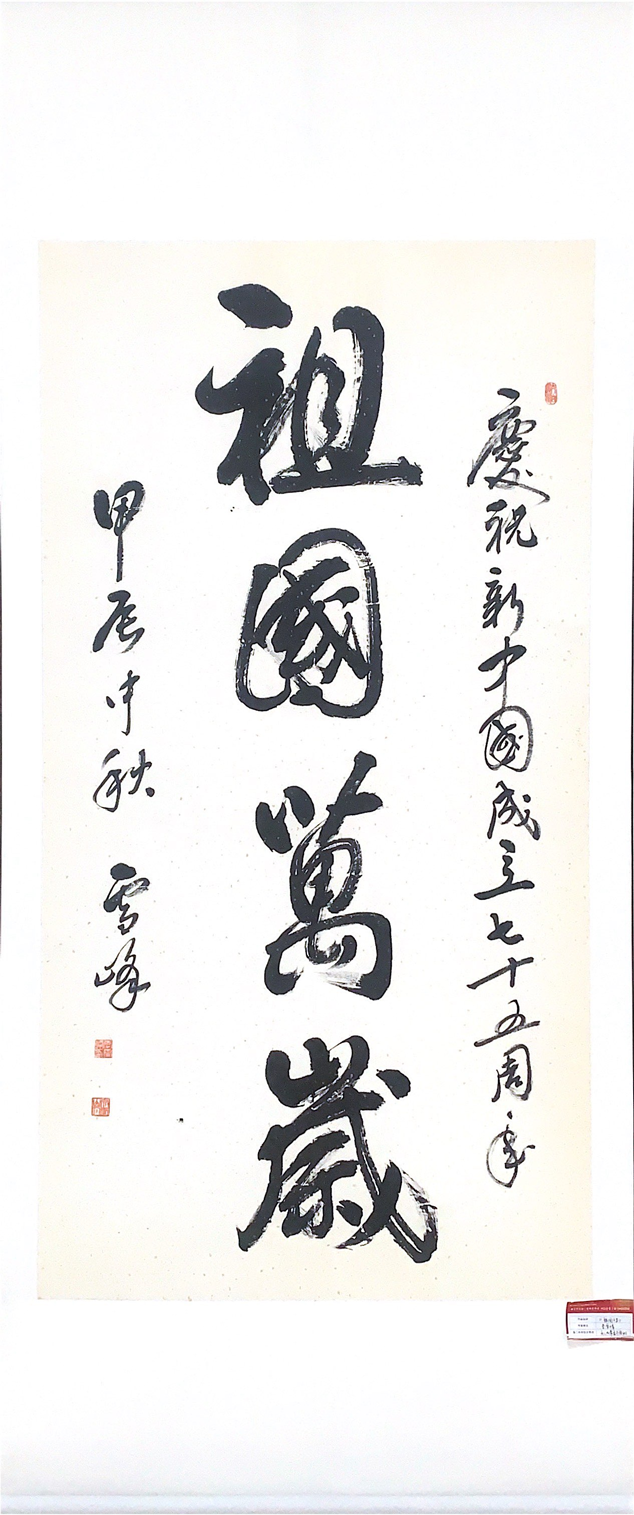 慶祝新中國成立七十五周年
祖國萬歲
甲辰中秋 雪峰